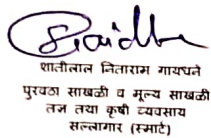 शांतीलाल निताराम गायधने
पुरवठा साखळी व मूल्य साखळी
तज्ञ तथा कृषी व्यवसाय
सल्लागार (स्मार्ट)